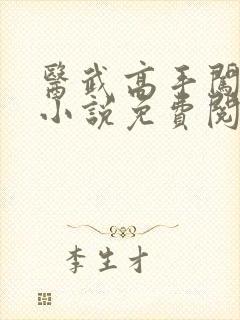 醫武高手闖
小說免費閱
李生才